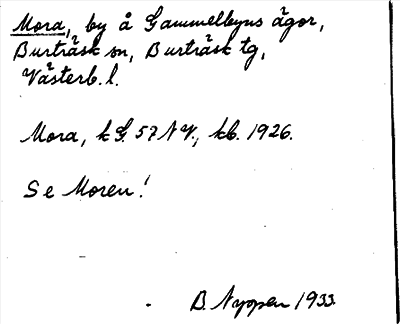 Mora, by å Gammelbyns ägor,
Burträsk sn, Burträsk tg,
Västerb. l.
Mora, k G. 57 NV., kb. 1926.
Se Moren!
B. Nyppen 1933.